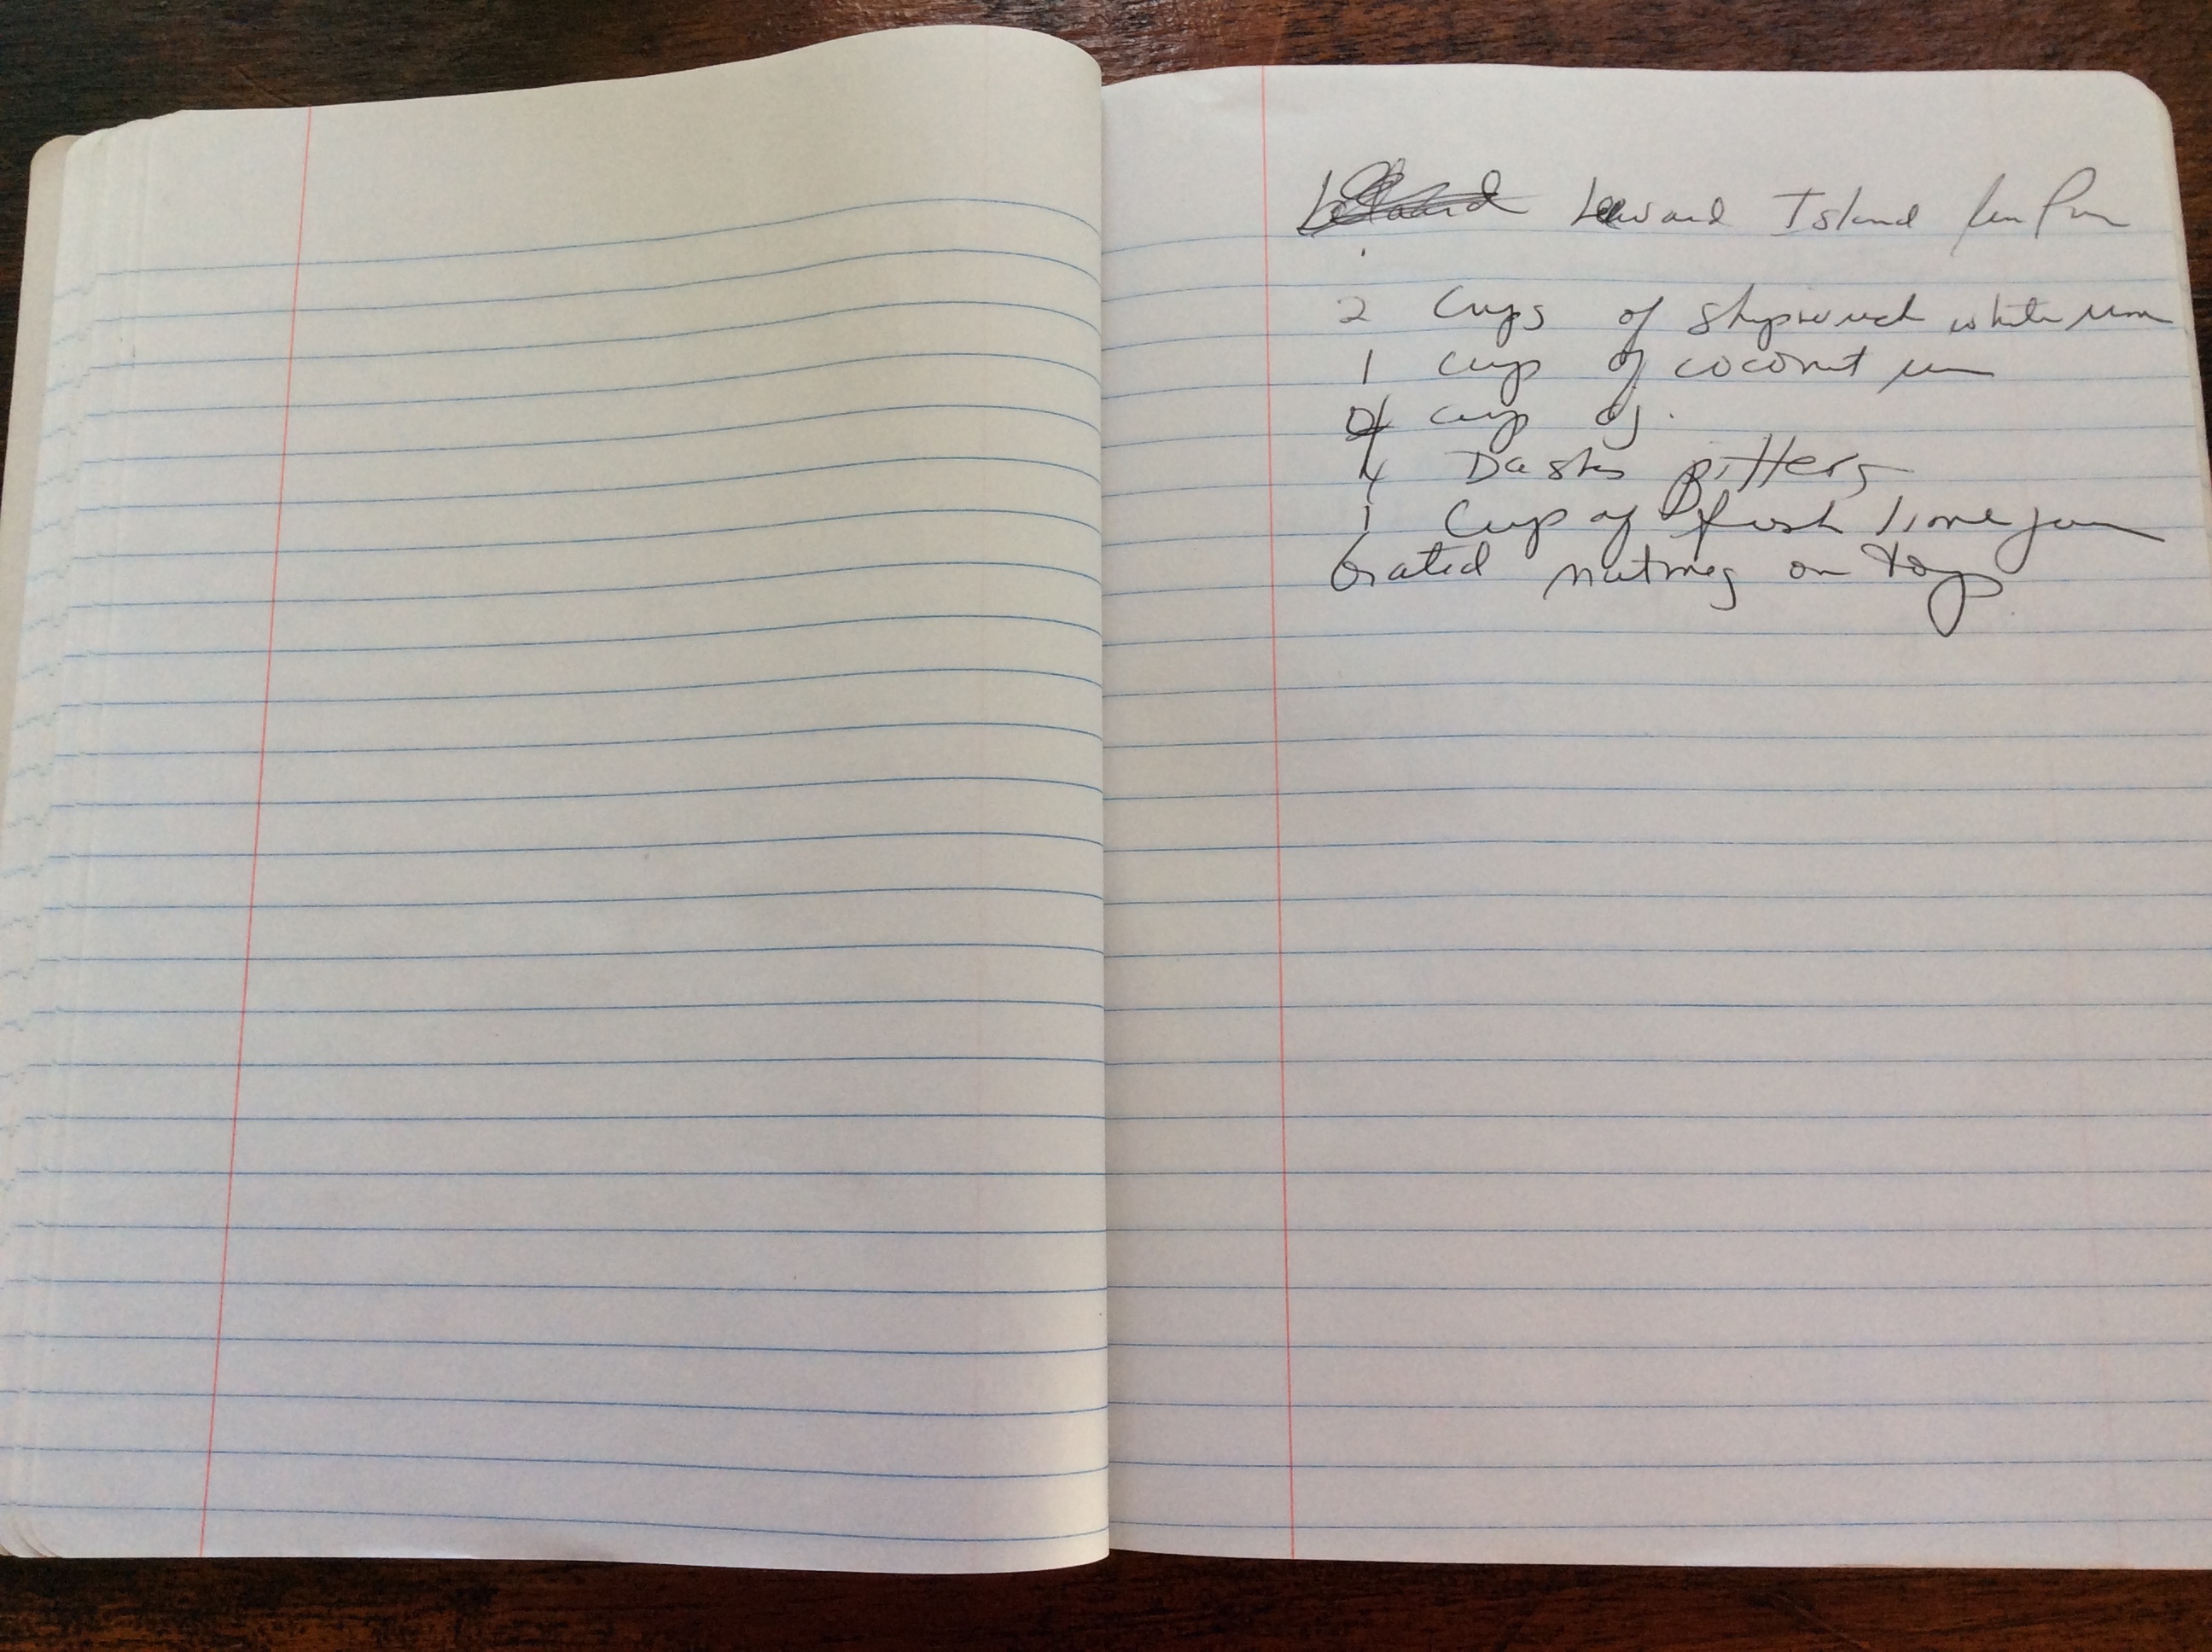 Leeward Island Rum Pun
2 Cups of Shipwreck white rum
1 cup of coconut rum
cup of
4 Dashes Bitters
1 Cup of fresh lime juice
Grated nutmeg on top